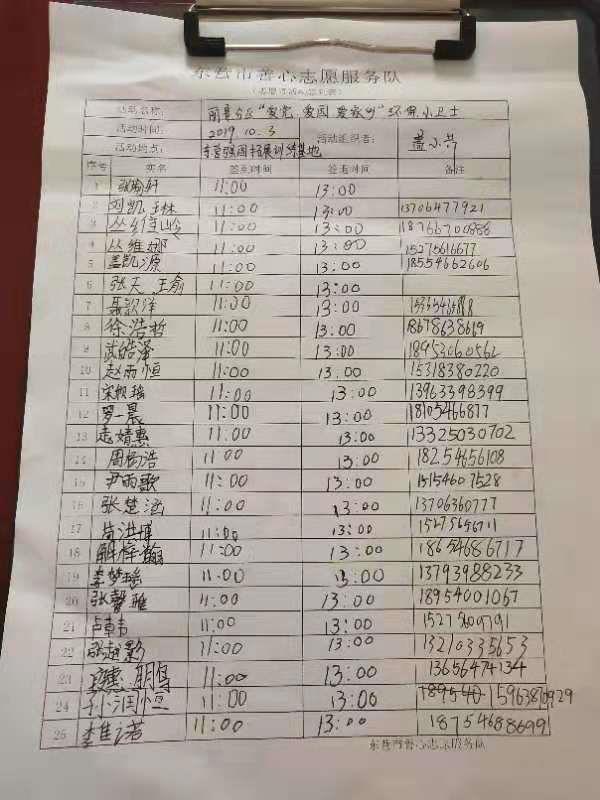 东营市善心志愿服务队
（志愿者活动签到表）
活动名称： "爱党、爱国、爱家乡"环保小卫士
活动时间： 2019.10.3 活动组织者： 盖小芳
活动地点： 东营强国拓展训练基地
序号 姓名 签到时间 签退时间 备注
1 张瑜轩 11:00 13:00
2 刘凯 王林 11:00 13:00 13706477921
3 丛 11:00 13:00 18766700888
4 丛维娜 11:00 13:00 15275616677
5 盖凯源 11:00 13:00 18554662606
6 张天 王俞 11:00 13:00
7 聂歆洋 11:00 13:00
8 徐浩哲 11:00 13:00 18678638619
9 武皓泽 11:00 13:00 18953060562
10 赵雨恒 11:00 13:00 15318380220
11 宋 瑶 11:00 13:00 13963398399
12 罗一晨 11:00 13:00 18105466877
13 志婧惠 11:00 13:00 13325030702
14 周杨浩 11:00 13:00 18254656108
15 尹雨歌 11:00 13:00 15154607528
16 张楚涵 11:00 13:00 13706360777
17 苟洪博 11:00 13:00 15275656711
18 解梓瀚 11:00 13:00 18654686717
19 李梦瑶 11:00 13:00 13793988233
20 张馨雅 11:00 13:00 18954001067
21 卢韩韦 11:00 13:00
22 张越影 11:00 13:00 13210335653
23 11:00 13:00 13656474134
24 11:00 13:00 15963870929
25 李佳诺 11:00 13:00 18754688699
东营市善心志愿服务队